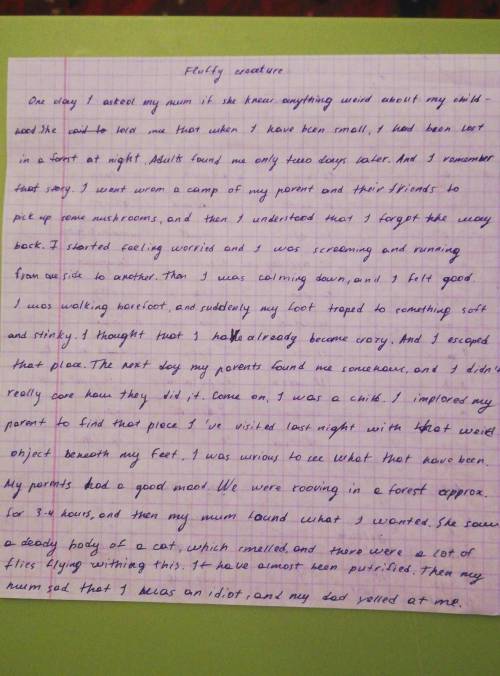 Fluffy creature
One day I asked my mum if she knew anything weird about my child-
hood. She said to told me that when I have been small, I had been lost
in a forest at night. Adults found me only two days later. And I remember
that story. I went wrom a camp of my parent and their friends to
pick up some mushrooms, and then I understood that I forgot the way
back. I started feeling worried and I was screaming and running
from one side to another. Then I was calming down, and I felt good.
I was walking barefoot, and suddenly my foot traped to something soft
and stinky. I thought that I have already become crazy. And I escaped
that place. The next day my parents found me somehow, and I didn't
really care how they did it. Come on, I was a child. I implored my
parent to find that place I've visited last night with that weird
object beneath my feet. I was urious to see what that have been.
My parents had a good mood. We were rooving in a forest approx.
for 3-4 hours, and then my mum found what I wanted. She saw
a deady body of a cat, which smelled, and there were a lot of
flies flying withing this. It have almost been putrified. Then my
mum sad that I was an idiot, and my dad yelled at me.